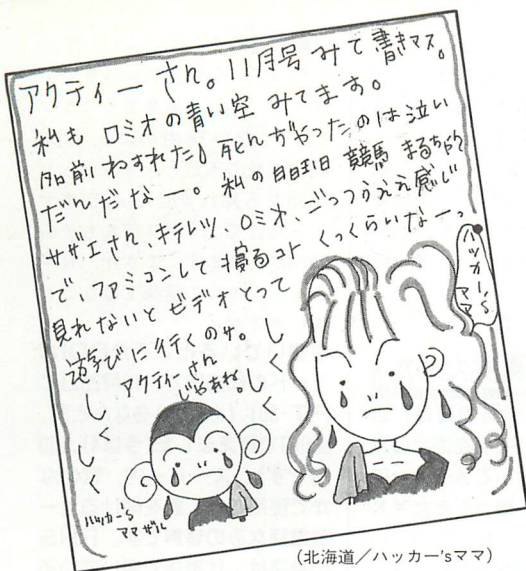 アクティーさん。11月号 みて 書きマス。
私も ロミオの青い空 みてます。
名前わすれた! 死んぢゃった。のは泣い
だんだなー。私の日曜日 競馬 まるち的
サザエさん、キテレツ、ロミオ、ごっつうええ感じ
で、ファミコンして 寝るコト くっくらいなーっ
見れないと ビデオとって
遊びに行くのサ。
アクティーさん
じゃあね。
しくしく
しくしく
ハッカー's
ママザル
ハッカー's
ママ
(北海道/ハッカー'sママ)